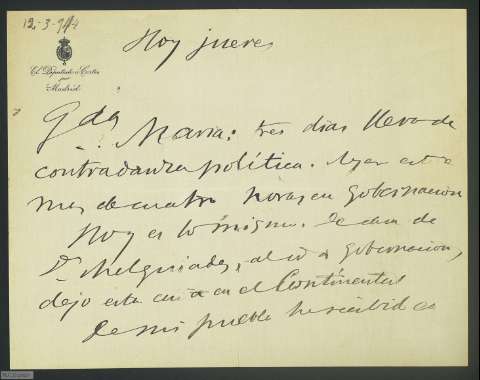 12-3-914
El Diputado a Cortes
por
Madrid
Hoy jueves
Qda María: tres días llevo de
contradanza política. Ayer estuve
mas de cuatro horas en Gobernacion
Hoy es lo mismo. De casa de
Dn Melquiades, al ir a gobernacion,
dejo esta carta en el Continental
De mi pueblo he recibido